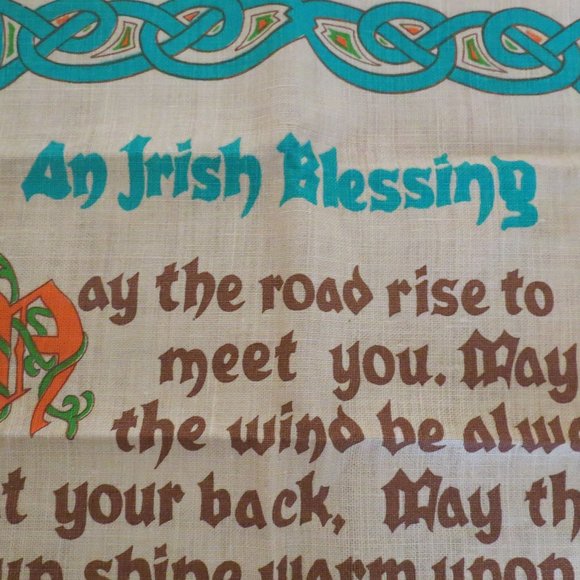 An Irish Blessing
May the road rise to
meet you. May
the wind be alwa
t your back, May th
un shine warm upon